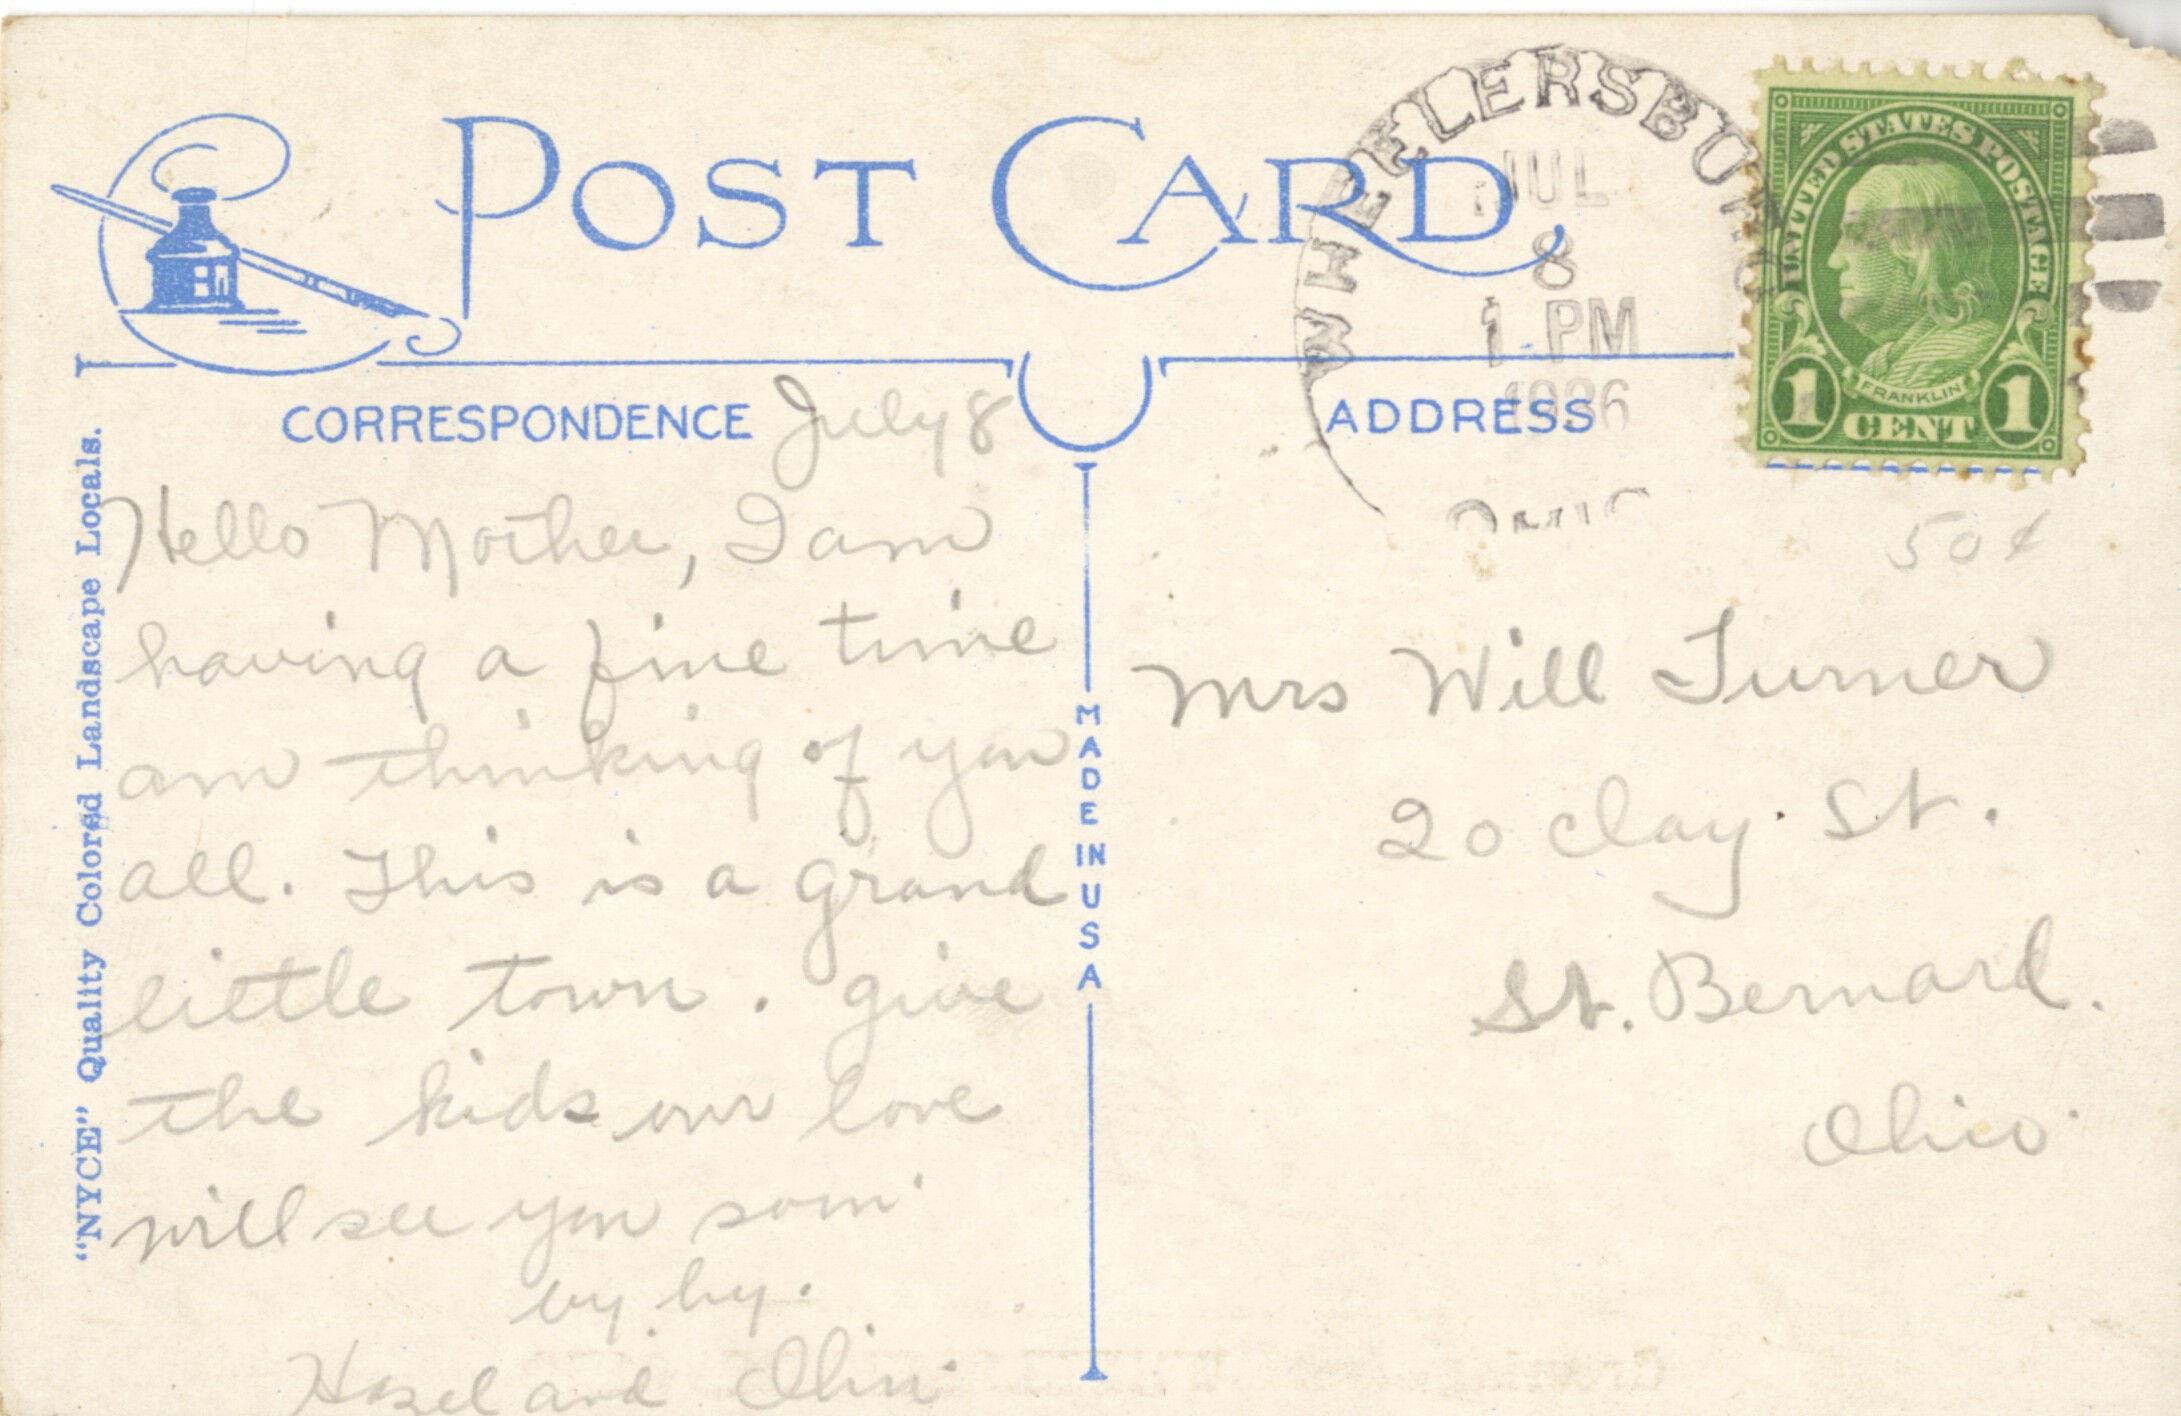 POST CARD
WHEELERSBURG
JUL
8
1 PM
1936
OHIO
UNITED STATES POSTAGE
FRANKLIN
1 CENT 1
CORRESPONDENCE
ADDRESS
"NYCE" Quality Colored Landscape Locals.
MADE IN USA
July 8
Hello Mother, I am
having a fine time
am thinking of you
all. This is a grand
little town. give
the kids our love
will see you soon
by by.
Hazel and Olin
50¢
Mrs Will Turner
20 Clay. St.
St. Bernard.
Ohio